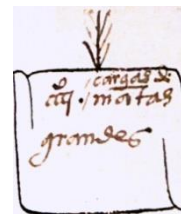 cargas de
iiijº . mantas
grandes